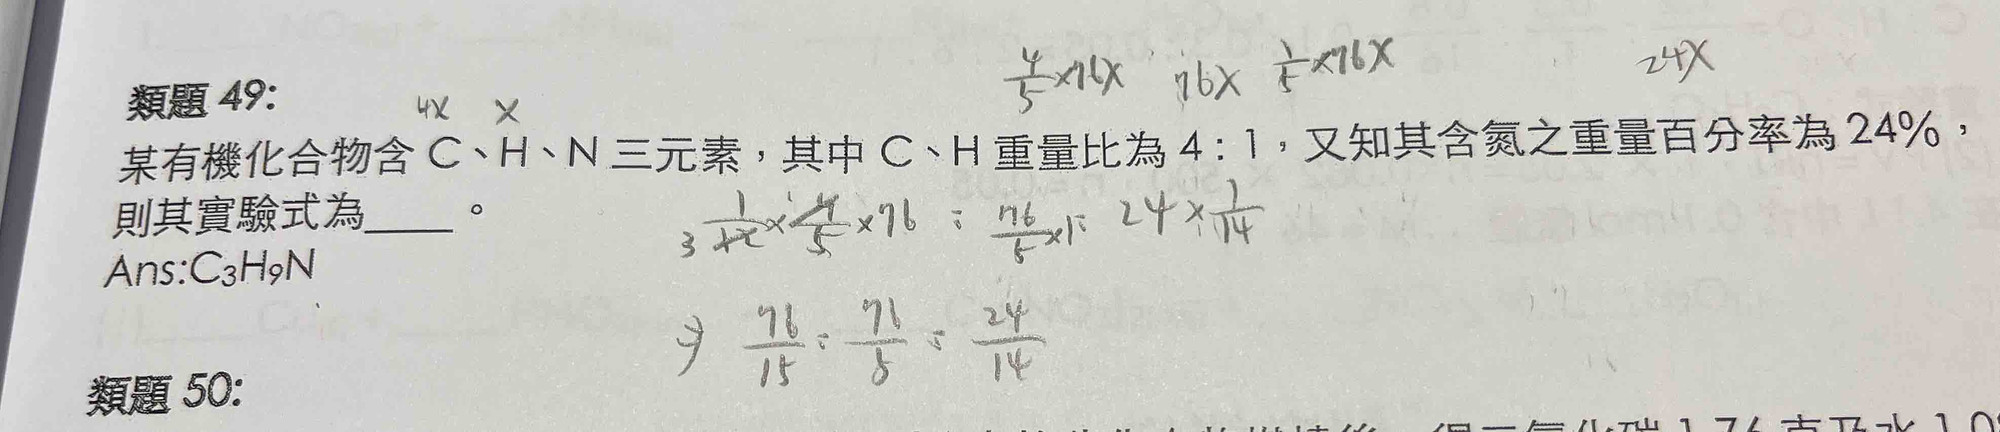 4/5×76X 76X 1/5×76X 24X
類題 49:
4X X
某有機化合物含 C、H、N 三元素，其中 C、H 重量比為 4：1，又知其含氮之重量百分率為 24%，
則其實驗式為____。
Ans:C₃H₉N
1/12×4/5×76 : 76/5×1: 24×1/14
⇒ 76/15 : 76/5 : 24/14
類題 50:
1.76 克及水 1.0